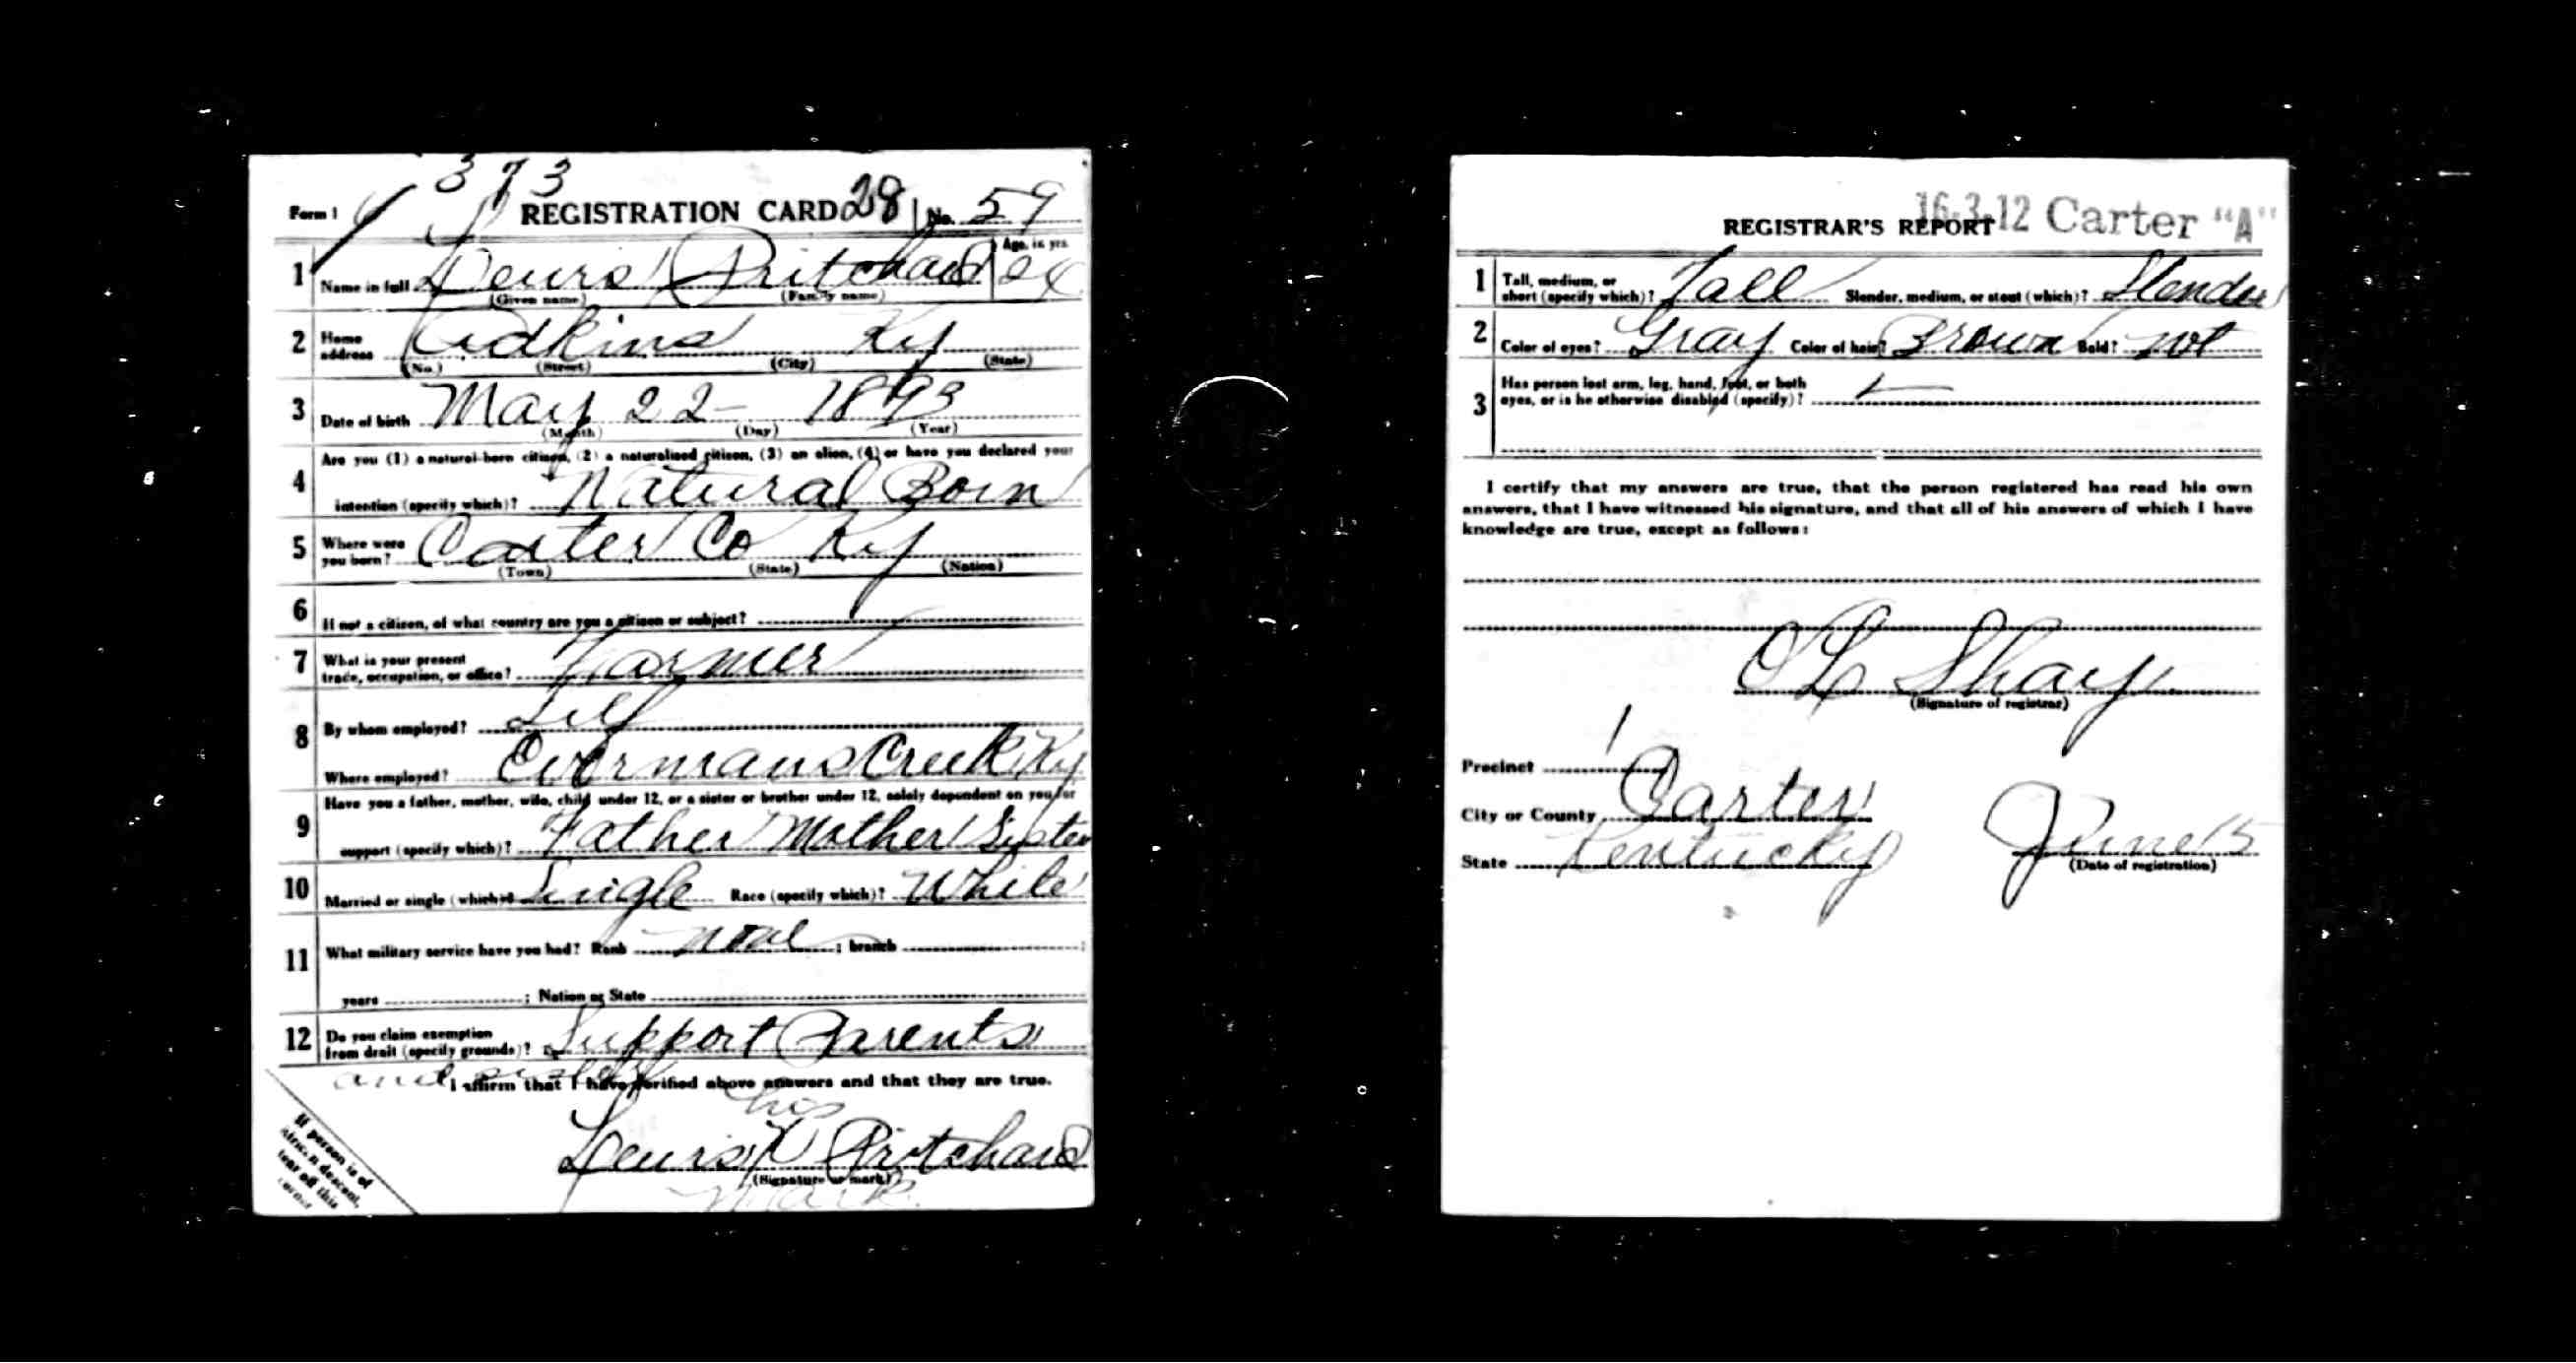 373
Form 1 REGISTRATION CARD 28 No. 59
1 Name in full Lewis Pritchard Age, in yrs. 24
(Given name) (Family name)
2 Home address Adkins Ky
(No.) (Street) (City) (State)
3 Date of birth May 22 1893
(Month) (Day) (Year)
4 Are you (1) a natural-born citizen, (2) a naturalized citizen, (3) an alien, (4) or have you declared your
intention (specify which)? Natural Born
5 Where were you born? Carter Co Ky
(Town) (State) (Nation)
6 If not a citizen, of what country are you a citizen or subject?
7 What is your present trade, occupation, or office? Farmer
8 By whom employed? Self
Where employed? Evermans Creek Ky
9 Have you a father, mother, wife, child under 12, or a sister or brother under 12, solely dependent on you for
support (specify which)? Father Mother Sister
10 Married or single (which)? Single Race (specify which)? White
11 What military service have you had? Rank none ; branch ;
years ; Nation or State
12 Do you claim exemption from draft (specify grounds)? Support Parents
and sister
I affirm that I have verified above answers and that they are true.
his
Lewis X Pritchard
(Signature or mark)
mark
If person is of
African descent,
tear off this
corner
16-3-12 Carter "A"
REGISTRAR'S REPORT
1 Tall, medium, or short (specify which)? Tall Slender, medium, or stout (which)? Slender
2 Color of eyes? Gray Color of hair? Brown Bald? not
3 Has person lost arm, leg, hand, foot, or both
eyes, or is he otherwise disabled (specify)?
I certify that my answers are true, that the person registered has read his own
answers, that I have witnessed his signature, and that all of his answers of which I have
knowledge are true, except as follows:
O L Shay
(Signature of registrar)
Precinct 1
City or County Carter
State Kentucky June 15
(Date of registration)